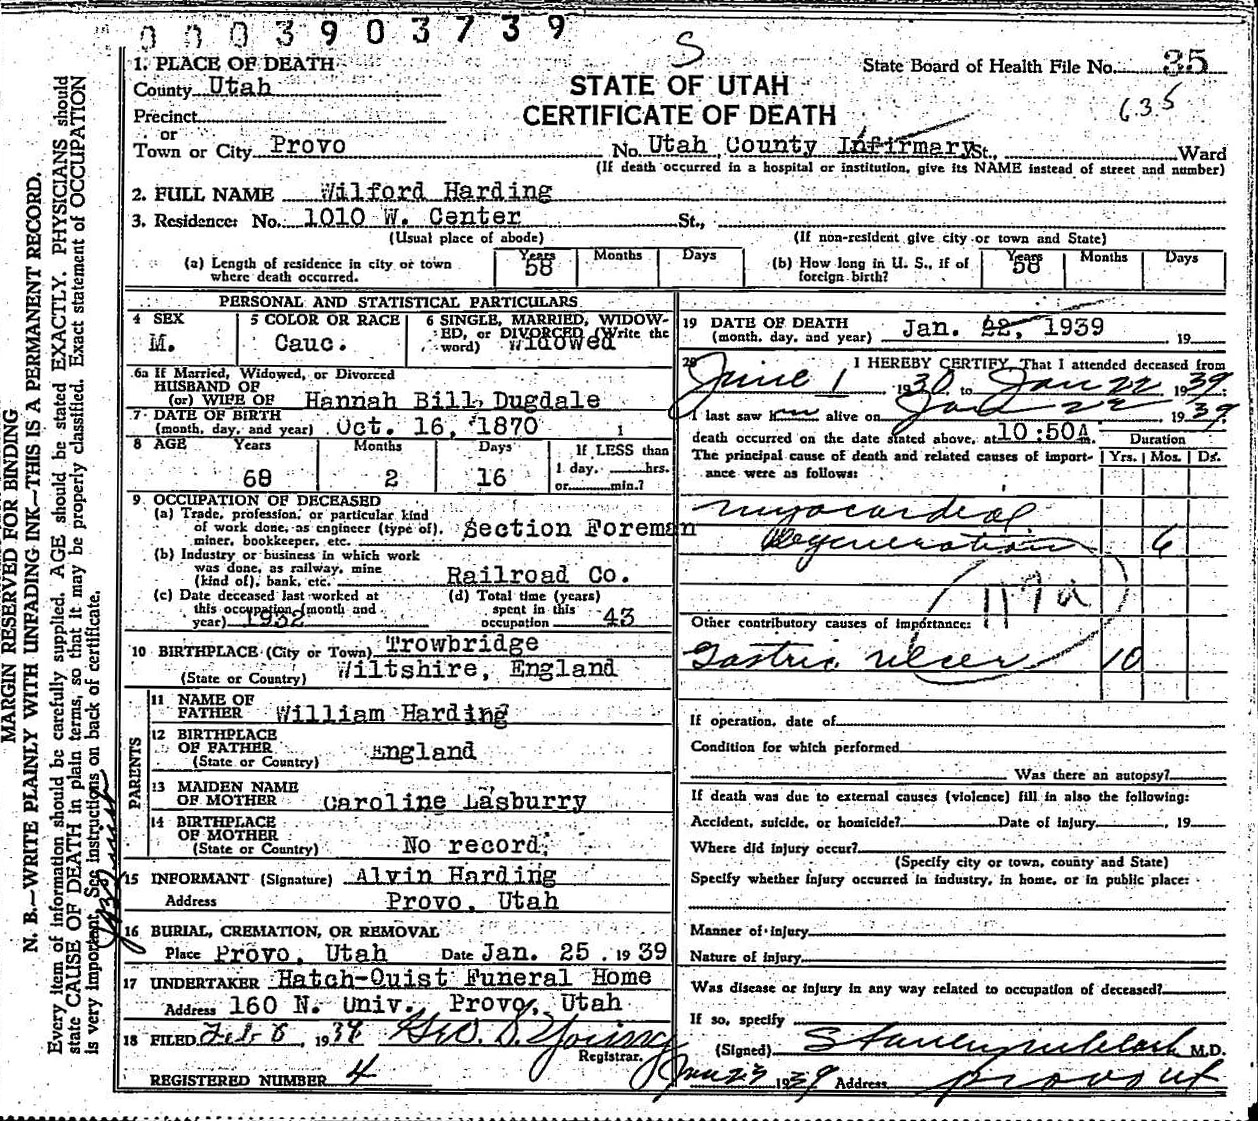 0003903739
S
State Board of Health File No. 35
635
STATE OF UTAH
CERTIFICATE OF DEATH
1. PLACE OF DEATH
County Utah
Precinct
or
Town or City Provo No. Utah County Infirmary St., Ward
(If death occurred in a hospital or institution, give its NAME instead of street and number)
2. FULL NAME Wilford Harding
3. Residence: No. 1010 W. Center St.,
(Usual place of abode) (If non-resident give city or town and State)
(a) Length of residence in city or town where death occurred. Years 58 Months Days
(b) How long in U. S., if of foreign birth? Years 58 Months Days
PERSONAL AND STATISTICAL PARTICULARS
4 SEX M.
5 COLOR OR RACE Cauc.
6 SINGLE, MARRIED, WIDOWED, or DIVORCED (Write the word) Widowed
6a If Married, Widowed, or Divorced
HUSBAND OF
(or) WIFE OF Hannah Bill Dugdale
7 DATE OF BIRTH
(month, day, and year) Oct. 16, 1870
8 AGE Years 68 Months 2 Days 16
If LESS than
1 day, hrs.
or min.?
9 OCCUPATION OF DECEASED
(a) Trade, profession, or particular kind
of work done, as engineer (type of),
miner, bookkeeper, etc. Section Foreman
(b) Industry or business in which work
was done, as railway, mine
(kind of), bank, etc. Railroad Co.
(c) Date deceased last worked at
this occupation (month and
year) 1932
(d) Total time (years)
spent in this
occupation 43
10 BIRTHPLACE (City or Town) Trowbridge
(State or Country) Wiltshire, England
PARENTS
11 NAME OF
FATHER William Harding
12 BIRTHPLACE
OF FATHER England
(State or Country)
13 MAIDEN NAME
OF MOTHER Caroline Lasburry
14 BIRTHPLACE
OF MOTHER
(State or Country) No record
15 INFORMANT (Signature) Alvin Harding
Address Provo, Utah
16 BURIAL, CREMATION, OR REMOVAL
Place Provo, Utah Date Jan. 25, 1939
17 UNDERTAKER Hatch-Quist Funeral Home
Address 160 N. Univ. Provo, Utah
18 FILED Feb 8, 19 Geo D. Young
Registrar.
REGISTERED NUMBER 4
19 DATE OF DEATH
(month, day, and year) Jan. 22, 1939 19
20 I HEREBY CERTIFY, That I attended deceased from
June 1 1930 to Jan 22 1939
I last saw alive on Jan 22 1939
death occurred on the date stated above, at 10:50A.
Duration
The principal cause of death and related causes of importance were as follows: Yrs. Mos. Ds.
myocardial
degeneration 6
Other contributory causes of importance:
Gastric ulcer 10
If operation, date of
Condition for which performed
Was there an autopsy?
If death was due to external causes (violence) fill in also the following:
Accident, suicide, or homicide? Date of injury , 19
Where did injury occur?
(Specify city or town, county and State)
Specify whether injury occurred in industry, in home, or in public place:
Manner of injury
Nature of injury
Was disease or injury in any way related to occupation of deceased?
If so, specify
(Signed) M.D.
Jan 23 1939 Address Provo Ut
MARGIN RESERVED FOR BINDING
N. B.—WRITE PLAINLY WITH UNFADING INK—THIS IS A PERMANENT RECORD.
Every item of information should be carefully supplied. AGE should be stated EXACTLY. PHYSICIANS should
state CAUSE OF DEATH in plain terms, so that it may be properly classified. Exact statement of OCCUPATION
is very important. See instructions on back of certificate.